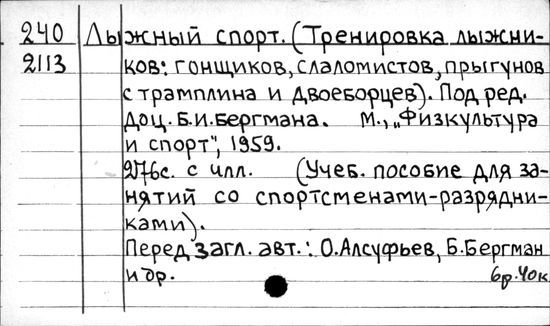 240 Лыжный спорт. (Тренировка лыжни-
2113 ков: гонщиков, слаломистов, прыгунов
с трамплина и двоеборцев). Под ред.
Доц. Б.И. Бергмана. М., „Физкультура
и спорт", 1959.
276с. с илл. (Учеб. пособие для за-
нятий со спортсменами-разрядни-
ками).
Перед загл. авт.: О. Алсуфьев, Б. Бергман
и др. 6р. 40к